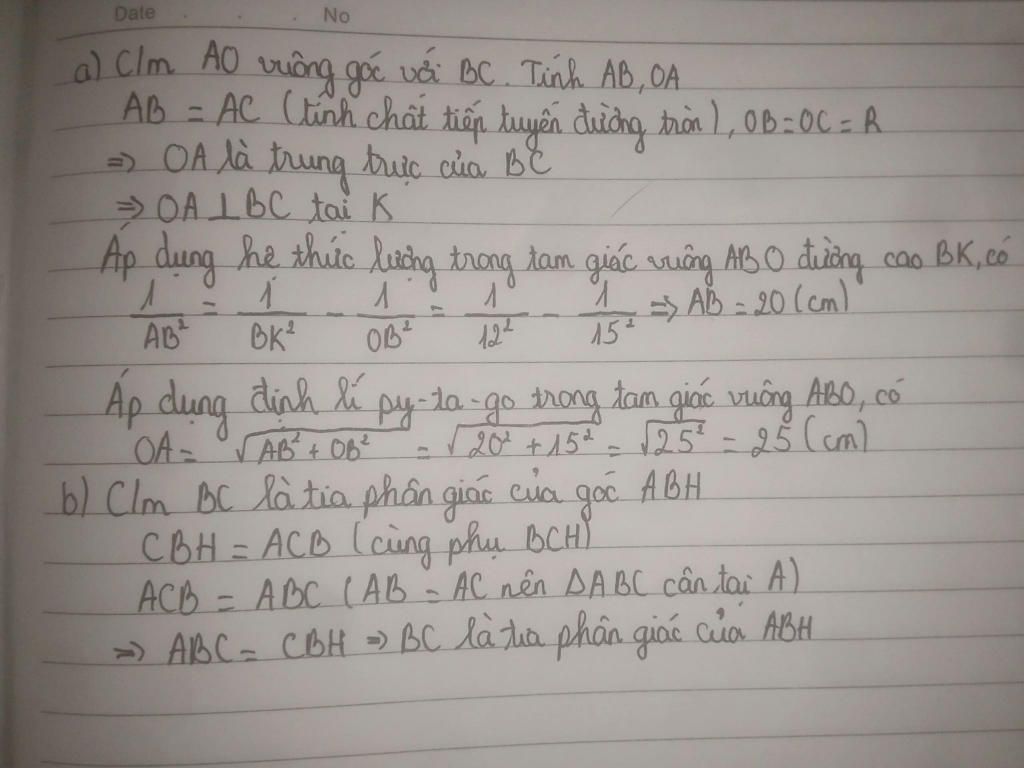 Date . . . No
a) C/m AO vuông góc với BC. Tính AB, OA
AB = AC (tính chất tiếp tuyến đường tròn), OB = OC = R
=> OA là trung trực của BC
=> OA ⊥ BC tại K
Áp dụng hệ thức lượng trong tam giác vuông ABO đường cao BK, có
1/AB² = 1/BK² - 1/OB² = 1/12² - 1/15² => AB = 20 (cm)
Áp dụng định lí py-ta-go trong tam giác vuông ABO, có
OA = √(AB² + OB²) = √(20² + 15²) = √25² = 25 (cm)
b) C/m BC là tia phân giác của góc ABH
CBH = ACB (cùng phụ BCH)
ACB = ABC (AB = AC nên ΔABC cân tại A)
=> ABC = CBH => BC là tia phân giác của ABH